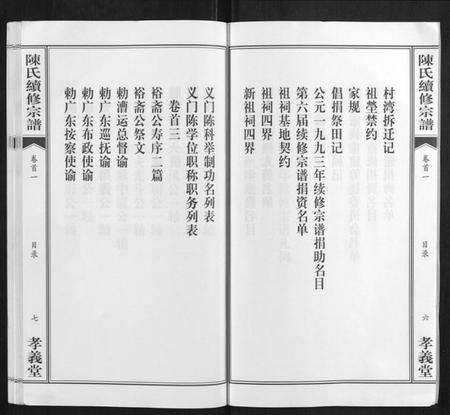 陳氏續修宗譜
卷首一
目录
六
孝義堂
村湾拆迁记
祖塋禁约
家规
倡捐祭田记
公元一九九三年续修宗谱捐助名目
第六届续修宗谱捐资名单
祖祠基地契约
祖祠四界
新祖祠四界
义门陈科举制功名列表
义门陈学位职称职务列表
卷首三
裕斋公寿序二篇
裕斋公祭文
勅漕运总督谕
勅广东巡抚谕
勅广东布政使谕
勅广东按察使谕
陳氏續修宗譜
卷首一
目录
七
孝義堂